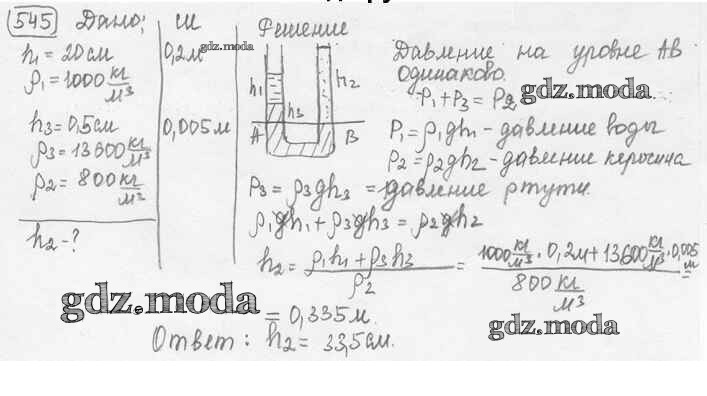 545 Дано; СИ Решение
h₁ = 20см 0,2м
ρ₁ = 1000 кг/м³
h₃ = 0,5см 0,005м
ρ₃ = 13600 кг/м³
ρ₂ = 800 кг/м²
h₂ - ?
h₁ h₂
h₃
A B
Давление на уровне AB
одинаково.
P₁ + P₃ = P₂
P₁ = ρ₁gh₁ - давление воды
P₂ = ρ₂gh₂ - давление керосина
P₃ = ρ₃gh₃ = давление ртути.
ρ₁gh₁ + ρ₃gh₃ = ρ₂gh₂
h₂ = (ρ₁h₁ + ρ₃h₃)/ρ₂ = (1000 кг/м³ · 0,2м + 13600 кг/м³ · 0,005 м)/(800 кг/м³) =
= 0,335м.
Ответ: h₂ = 33,5см.
gdz.moda
gdz.moda
gdz.moda
gdz.moda